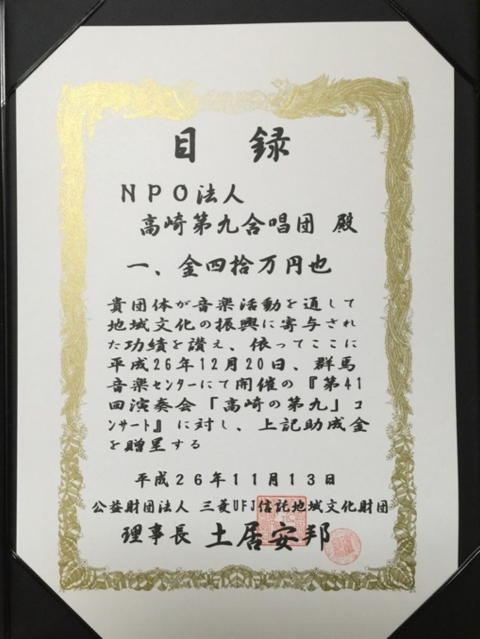 目録
NPO法人
高崎第九合唱団 殿
一、金四拾万円也
貴団体が音楽活動を通して
地域文化の振興に寄与され
た功績を讃え、依ってここに
平成26年12月20日、群馬
音楽センターにて開催の『第41
回演奏会「高崎の第九」コ
ンサート』に対し、上記助成金
を贈呈する
平成26年11月13日
公益財団法人 三菱UFJ信託地域文化財団
理事長 土居安邦